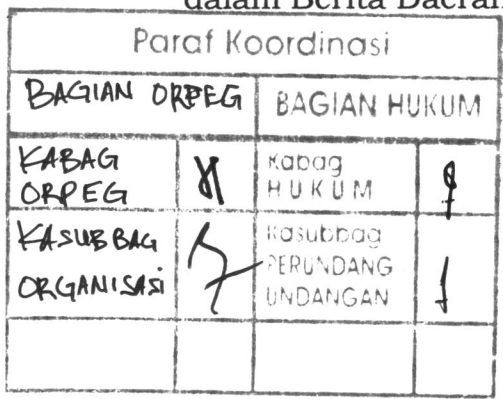 dalam Berita Daerah
Paraf Koordinasi
BAGIAN ORPEG
BAGIAN HUKUM
KABAG
ORPEG
Kabag
HUKUM
KASUBBAG
ORGANISASI
Kasubbag
PERUNDANG
UNDANGAN